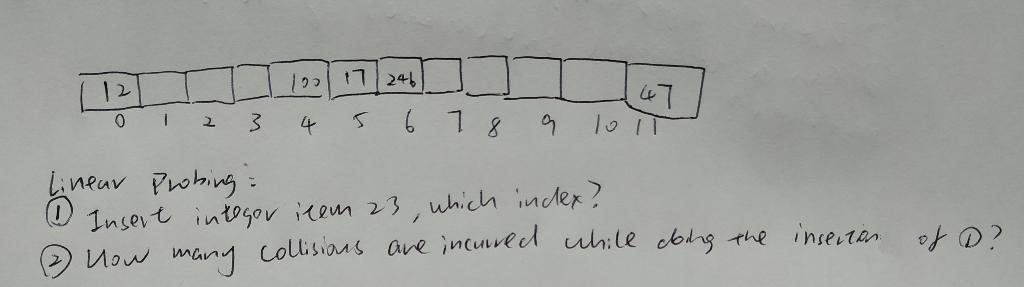 12 100 17 246 47
0 1 2 3 4 5 6 7 8 9 10 11
Linear Probing:
① Insert integer item 23, which index?
② How many collisions are incurred while doing the insertion of ①?